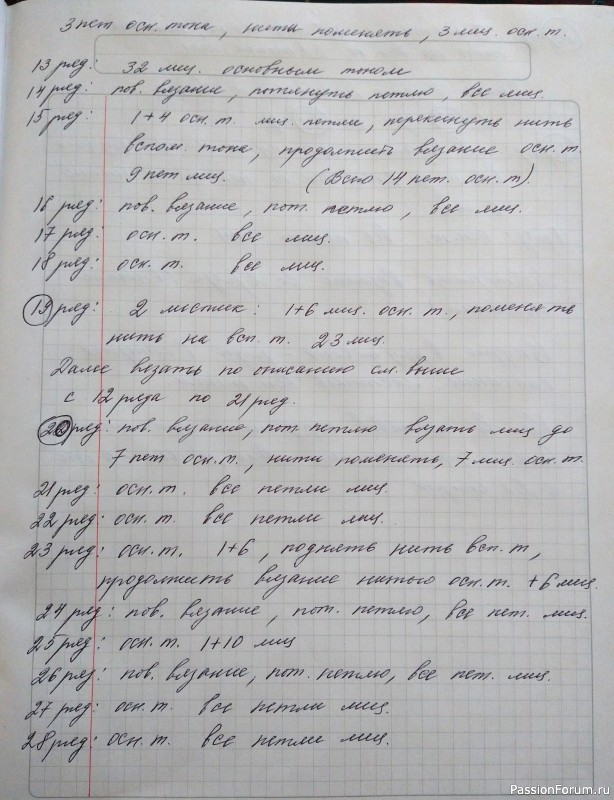 3 пет. осн. тона, нити поменять, 3 лиц. осн. т.
13 ряд: 32 лиц. основным тоном
14 ряд: пов. вязание, потянуть петлю, все лиц.
15 ряд: 1+4 осн. т. лиц. петли, перекинуть нить
вспом. тона, продолжить вязание осн. т.
9 пет лиц. (Всего 14 пет. осн. т).
16 ряд: пов. вязание, пот. петлю, все лиц.
17 ряд: осн. т. все лиц.
18 ряд: осн. т. все лиц.
19 ряд: 2 мостик: 1+6 лиц. осн. т., поменять
нить на всп. т. 23 лиц.
Далее вязать по описанию см. выше
с 12 ряда по 21 ряд.
20 ряд: пов. вязание, пот. петлю вязать лиц до
7 пет осн. т., нити поменять, 7 лиц. осн. т.
21 ряд: осн. т. все петли лиц.
22 ряд: осн. т. все петли лиц.
23 ряд: осн. т. 1+6, поднять нить всп. т,
продолжить вязание нитью осн. т. +6 лиц.
24 ряд: пов. вязание, пот. петлю, все пет. лиц.
25 ряд: осн. т. 1+10 лиц
26 ряд: пов. вязание, пот. петлю, все пет. лиц.
27 ряд: осн. т. все петли лиц.
28 ряд: осн. т. все петли лиц.
PassionForum.ru